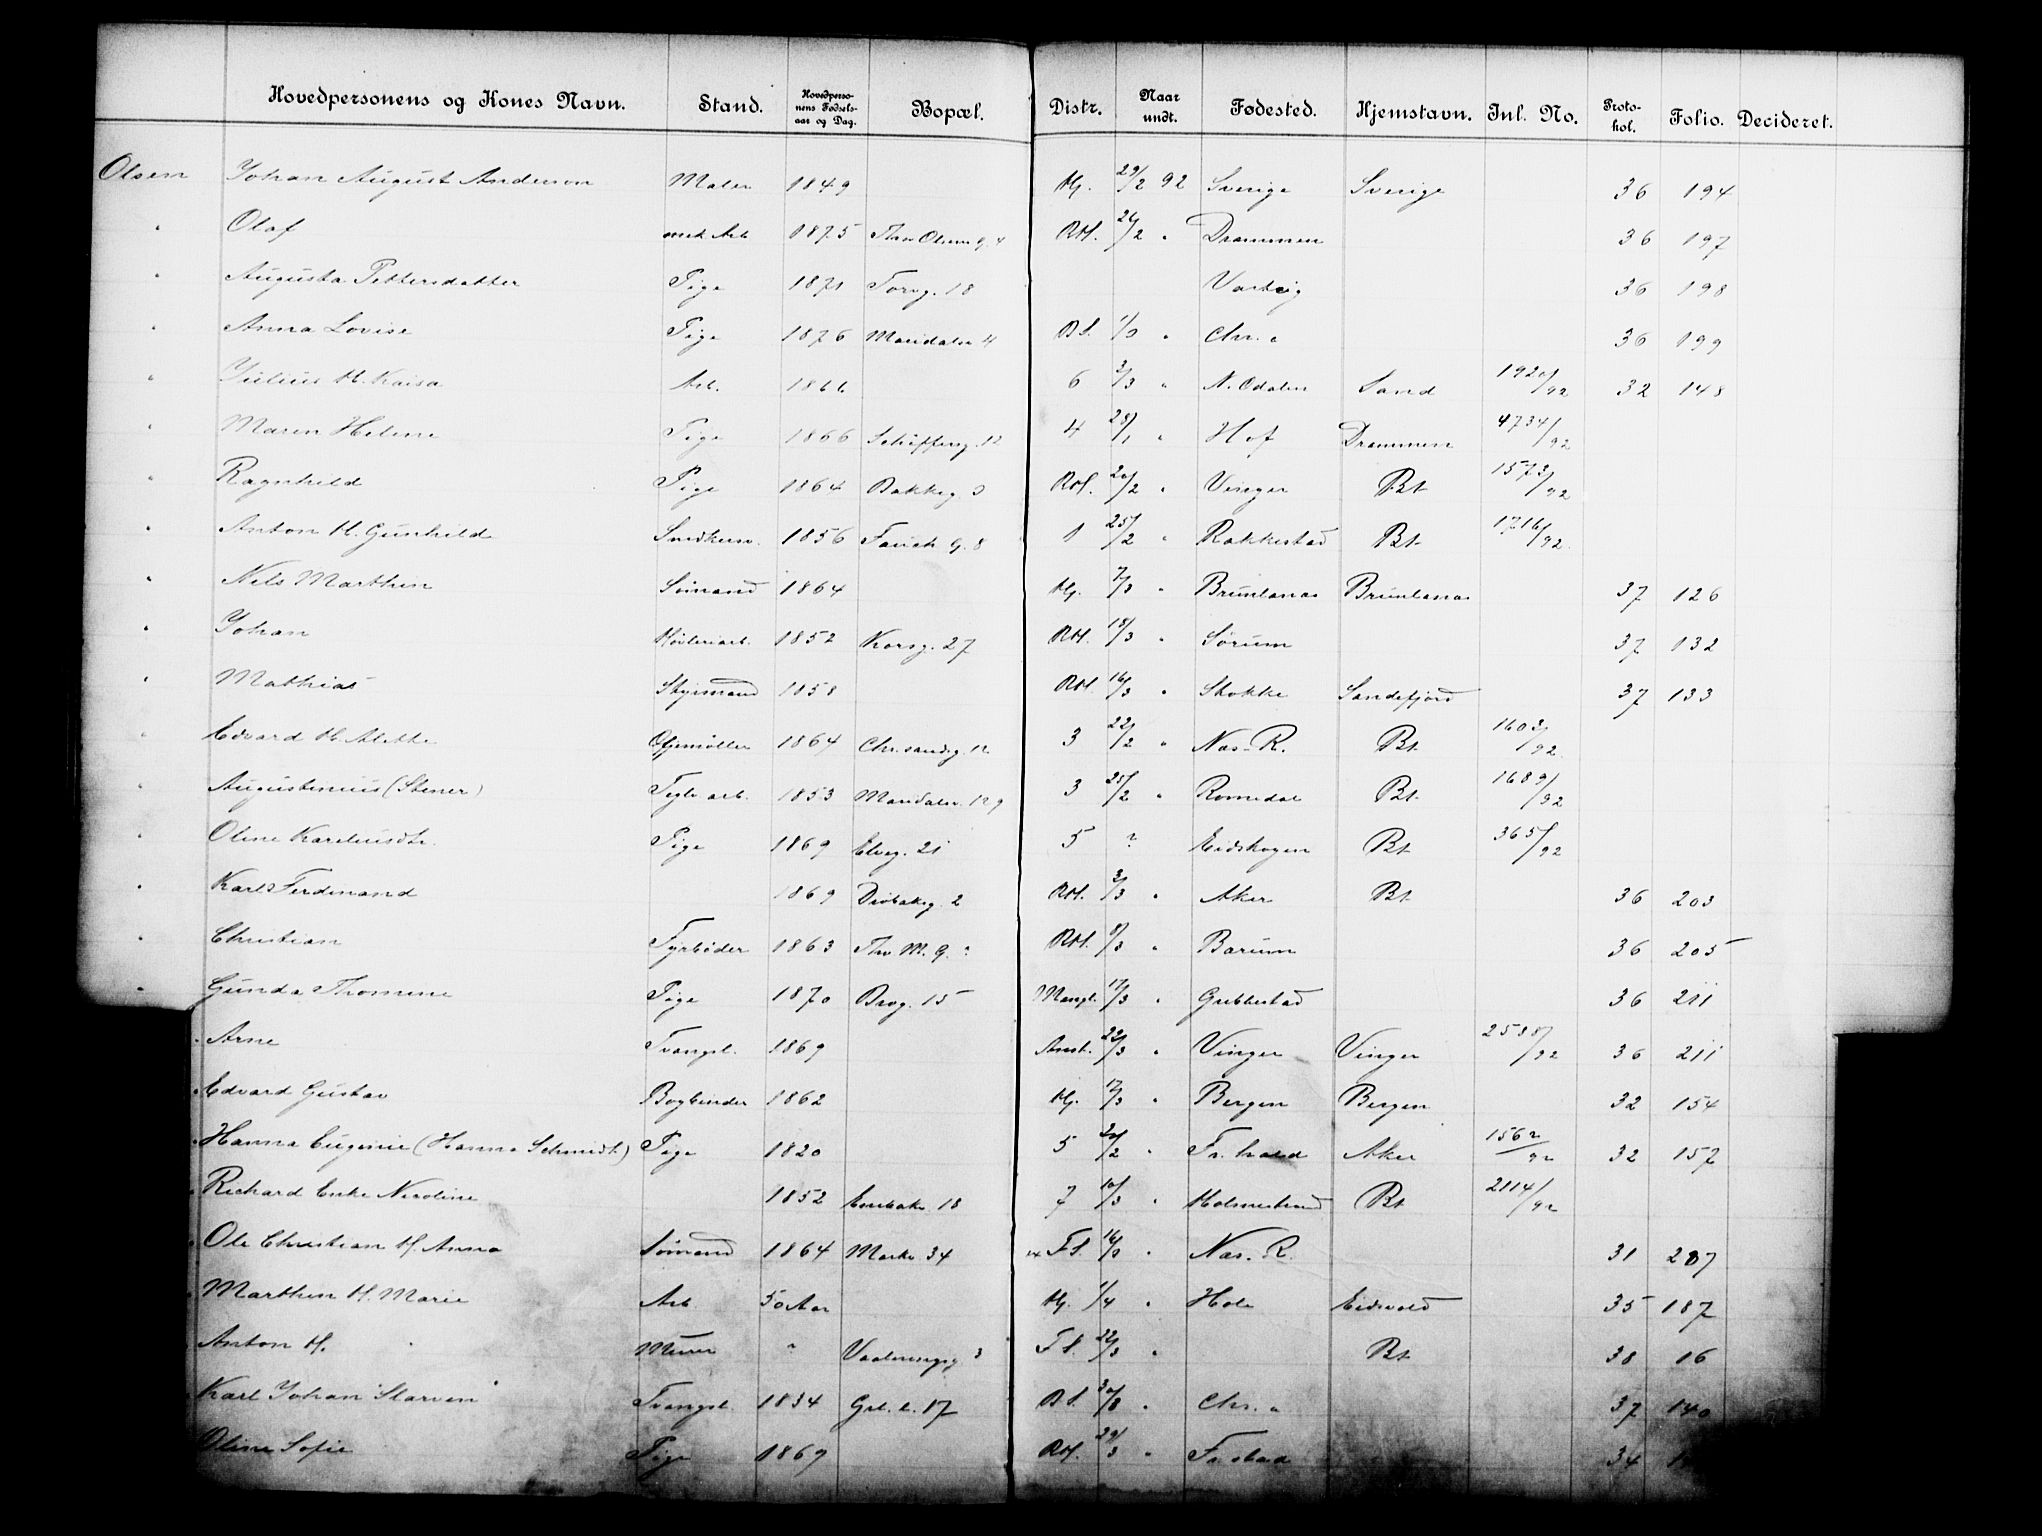 Hovedpersonens og Kones Navn. Stand. Hovedperso-nens Fødsels-aar og Dag. Bopæl. Distr. Naar undt. Fødested. Hjemstavn. Inl. No. Proto-kol. Folio. Decideret.
Olsen Johan August Anderson Maler 1849 Hj. 29/2 92 Sverige Sverige 36 194
" Olaf mek Arb 1875 Thv Olsens g. 4 RH. 26/2 " Drammen 36 197
" Augusta Pettersdatter Pige 1871 Torvg. 18 Varteig 36 198
" Anna Lovise Pige 1876 Maridalsv 4 BS. 1/3 " Chr. a 36 199
" Julius H. Kaisa Arb. 1866 6 3/3 " N. Odalen Sand 1920/92 32 148
" Maren Helene Pige 1866 Schifterg. 12 4 28/1 " Hof Drammen 4734/92
" Ragnhild Pige 1864 Bakkeg 3 RH. 20/2 " Vinger Bt 1573/92
" Anton H. Gunhild Snedkersv. 1856 g. 8 1 25/2 " Rakkestad Bt 1716/92.
" Nels Marthin Sømand 1864 Hj. 7/3 " Brunlanæs Brunlanæs 37 126
" Johan Høvleriarb. 1852 Korsg. 27 RH. 18/3 " Sørum 37 132
" Mathias Styrmand 1858 RH. 16/3 " Stokke Sandefjord 37 133
" Edvard H. Alette 1864 Chr.sandsg. 12 3 22/2 " Næs. R. Bt 1603/92
" Augustinius (Stener) Teglv arb. 1853 Maridalsv. 129 3 25/2 " Romedal Bt 1689/92
" Oline Kareliusdtr. Pige 1869 Elveg. 21 5 ? Eidskogen Bt 365/92
" Karl Ferdinand 1869 Drøbaksg. 2 RH. 3/3 " Aker Bt 36 203
" Christian Fyrbøder 1863 Thv M. g. ? RH. 8/3 " Bærum 36 205
" Gunda Thomine Pige 1870 Brog. 15 Mangl. 17/3 " Grebbestad 36 211
" Arne Tvangsl. 1869 Anst. 22/3 " Vinger Vinger 2538/92 36 211
" Edvard Gustav Bogbinder 1862 Hj. 17/3 " Bergen Bergen 32 154
" Hanna Eugenie (Hanna Schmidt) Pige 1820 5 20/2 " Fr. hald Aker 1562/92 32 157
" Richard Enke Nicoline 1852 Enebakv. 18 7 10/3 " Holmestrand Bt 2114/92
" Ole Christian H. Anna Sømand 1864 Markv 34 FS. 16/3 " Næs. R. 31 287
" Marthin H. Marie Arb 50 Aar Hj. 1/4 " Hole Eidsvold 35 187
" Anton H. " Murer " Vaalerengsg 3 FS. 22/3 " Bt 38 16
Karl Johan "Slarven" Tvangsl. 1834 Grl. l. 17 BS. 30/3 " Chr. a 37 140
Oline Sofie Pige 1869 RH. 29/3 " Fr. stad 34